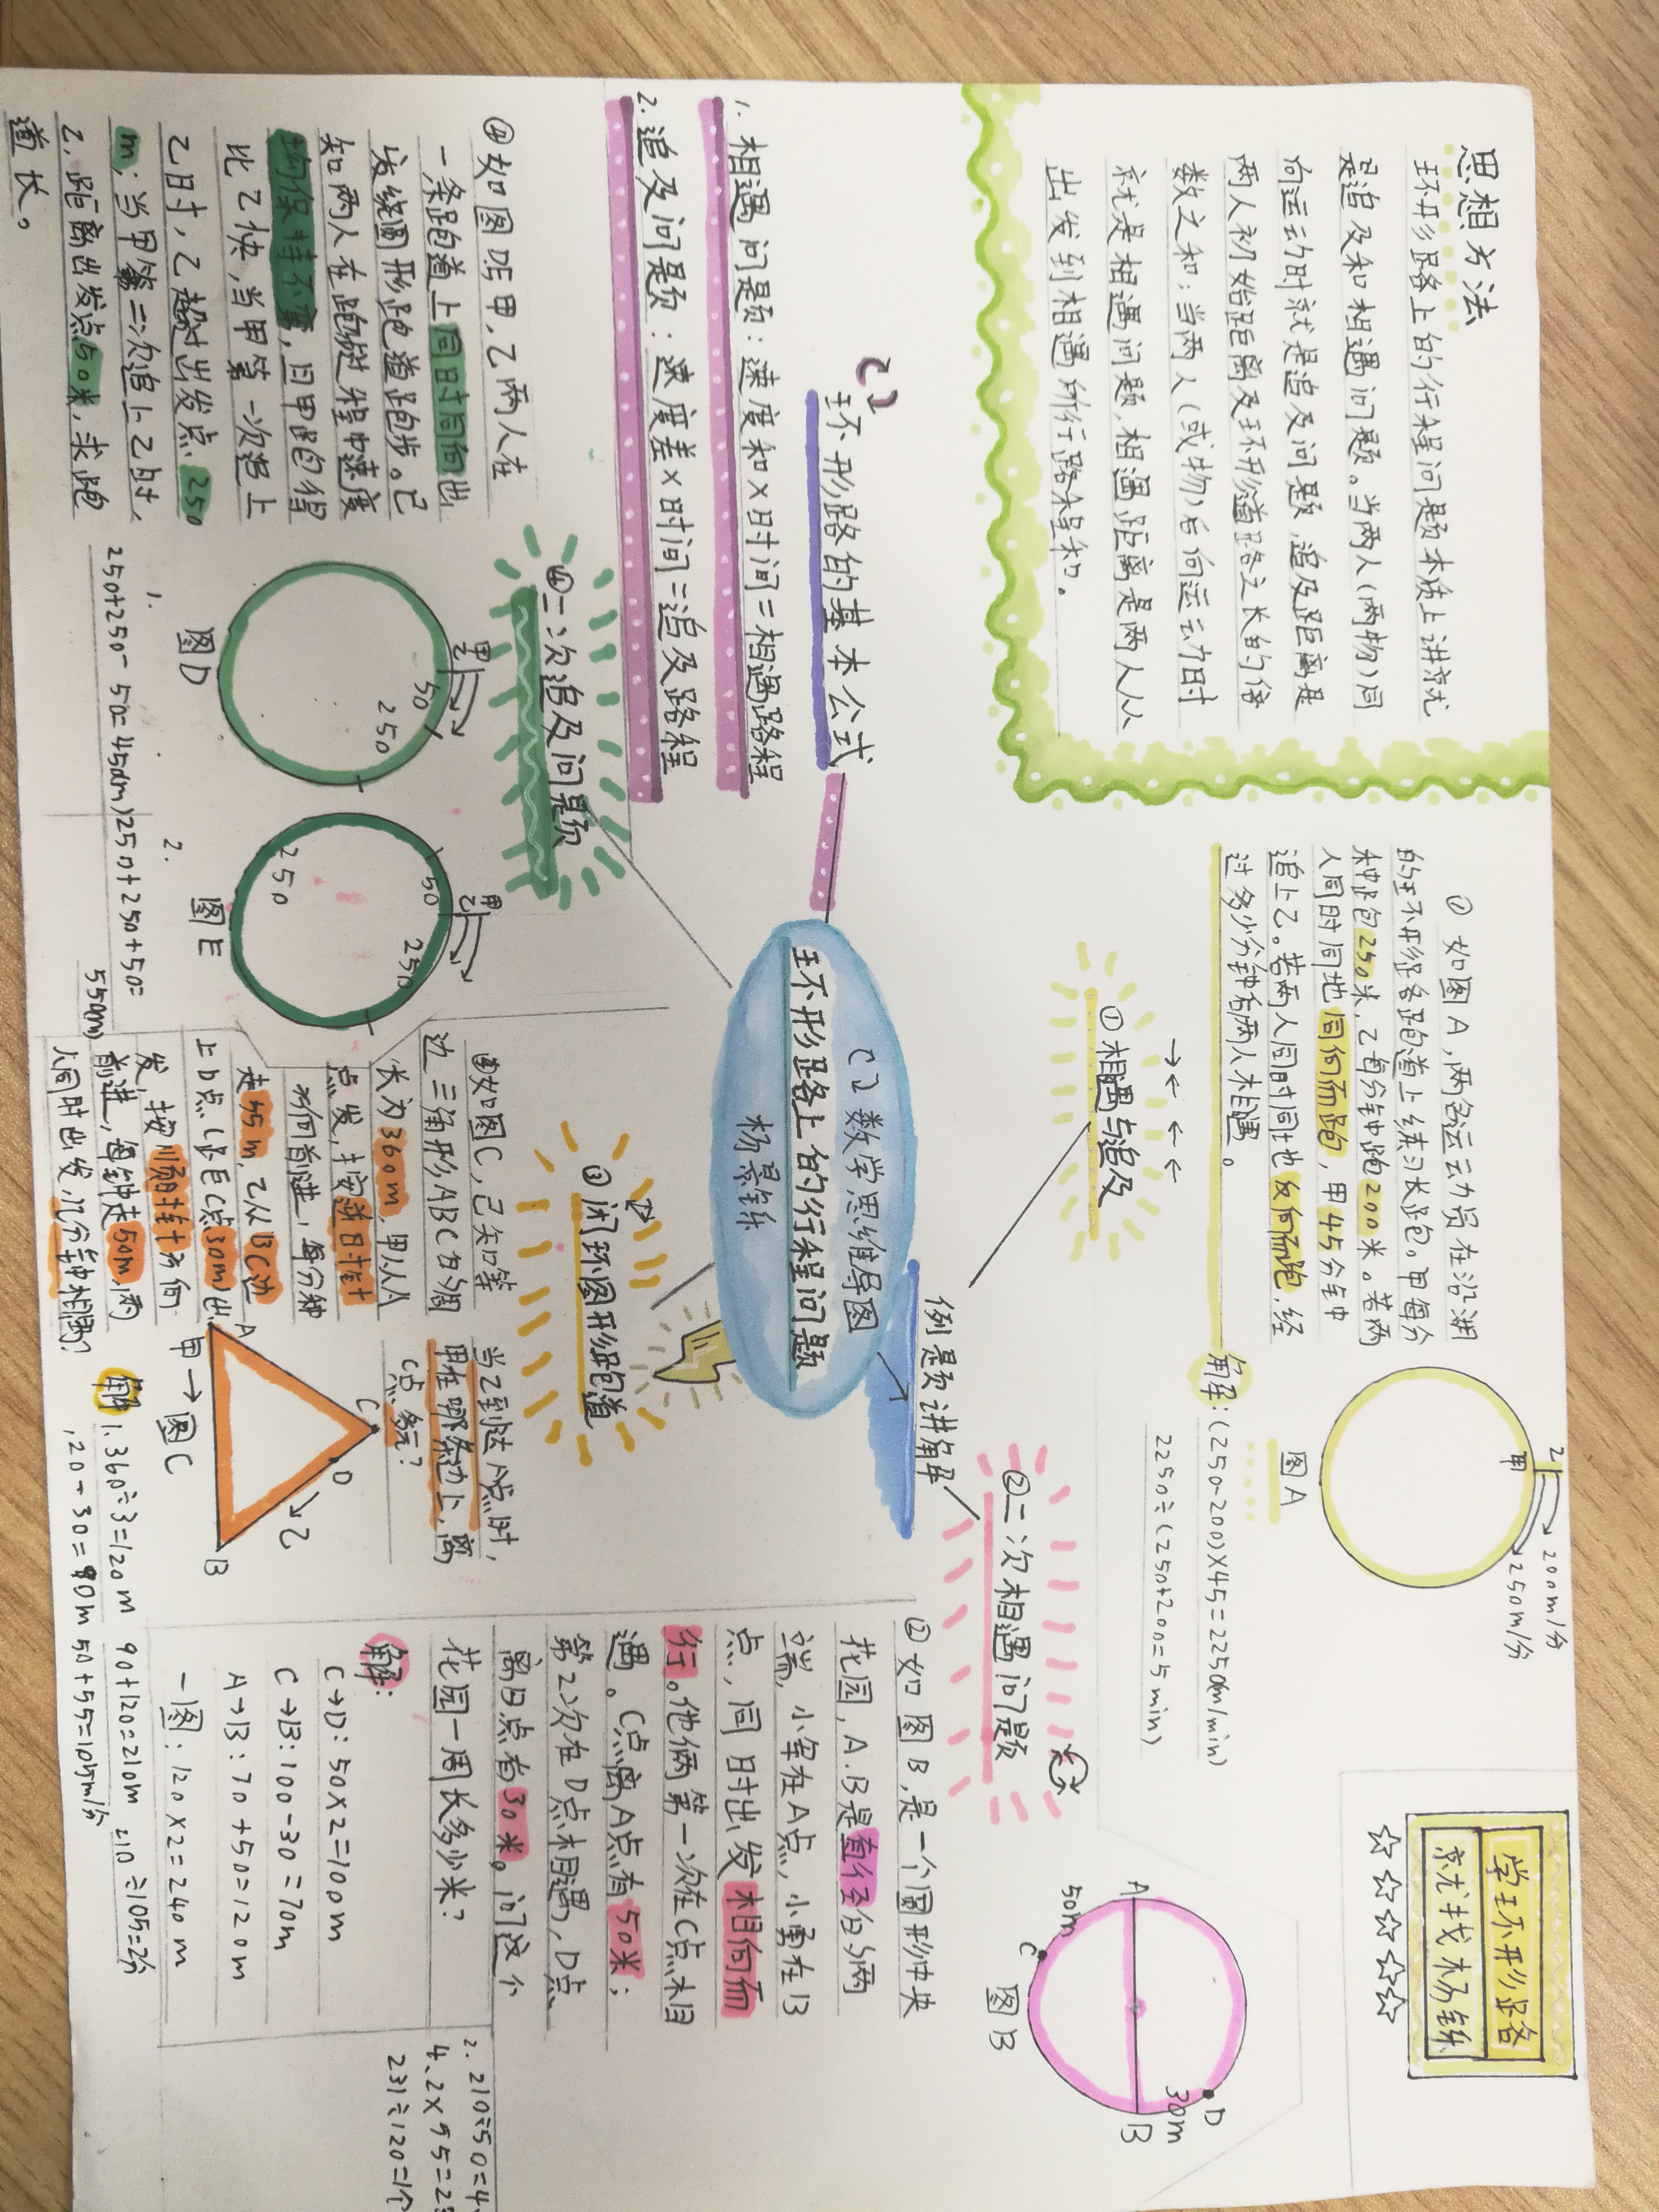 思想方法
环形路上的行程问题本质上讲就
是追及和相遇问题。当两人(两物)同
向运动时就是追及问题,追及距离是
两人初始距离及环形道路之长的倍
数之和;当两人(或物)后向运动时
就是相遇问题,相遇距离是两人从
出发到相遇所行路程和.
环形路的基本公式
1. 相遇问题:速度和×时间=相遇路程
2. 追及问题:速度差×时间=追及路程
数学思维导图
环形路上的行程问题
例题讲解
①相遇与追及
① 如图A,两名运动员在沿湖
的环形路跑道上练习长跑。甲每分
钟跑250米,乙每分钟跑200米。若两
人同时同地同向而跑,甲45分钟
追上乙。若两人同时同地反向而跑,经
过多少分钟两人相遇。
解:(250-200)×45=2250(m/min)
2250÷(250+200=5min)
图A
乙
甲
200m/分
250m/分
学环形路
就找杨
②二次相遇问题
②如图B,是一个圆形中央
花园,A.B是直径的两
端,小军在A点,小勇在B
点,同时出发相向而
行。他俩第一次在C点相
遇。C点离A点有50米;
第2次在D点相遇,D点
离B点有30米。问这个
花园一周长多少米?
解:
C→D:50×2=100m
C→B:100-30=70m
A→B:70+50=120m
一圈:120×2=240m
A
50m
C
图B
B
30m
D
③闭环图形跑道
③如图C,已知等
边三角形ABC的周
长为360m,甲从A
点发,按逆时针
方向前进,每分钟
走55m,乙从BC边
上D点(距C点30m)出
发,按顺时针方向
前进,每钟走50m,两
人同时出发,几分钟相遇?
当乙到达A点时,
甲在哪条边上,离
C点多远?
A
C
D
乙
B
甲→
图C
解1.360÷3=120m 90+120=210m 210÷105=2分
120-30=90m 50+55=105m/分
2.210÷50=4.
4.2×55=23
231÷120=1个
④二次追及问题
④如图DE甲,乙两人在
一条跑道上同时同向出
发绕圆形跑道跑步。已
知两人在跑步过程中速度
均保持不变,且甲跑得
比乙快,当甲第一次追上
乙时,乙超过出发点250
m;当甲第二次追上乙时,
乙距离出发点50米,求跑
道长。
甲
乙
50
250
图D
甲
乙
50
250
250
图E
1.
250+250-50=450(m)
2.
250+250+50=
550(m)